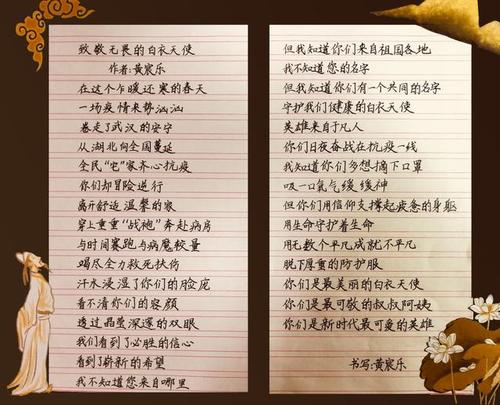 致敬无畏的白衣天使
作者:黄宸乐
在这个乍暖还寒的春天
一场疫情来势汹汹
卷走了武汉的安宁
从湖北向全国蔓延
全民“宅”家齐心抗疫
你们却冒险逆行
离开舒适温馨的家
穿上重重“战袍”奔赴病房
与时间赛跑与病魔较量
竭尽全力救死扶伤
汗水浸湿了你们的脸庞
看不清你们的容颜
透过晶莹深邃的双眼
我们看到了必胜的信心
看到了崭新的希望
我不知道您来自哪里
但我知道你们来自祖国各地
我不知道您的名字
但我知道你们有一个共同的名字
守护我们健康的白衣天使
英雄来自于凡人
你们日夜奋战在抗疫一线
我知道你们多想摘下口罩
吸一口氧气缓缓神
但你们用信仰支撑起疲惫的身躯
用生命守护着生命
用无数个平凡成就不平凡
脱下厚重的防护服
你们是最美丽的白衣天使
你们是最可敬的叔叔阿姨
你们是新时代最可爱的英雄
书写:黄宸乐